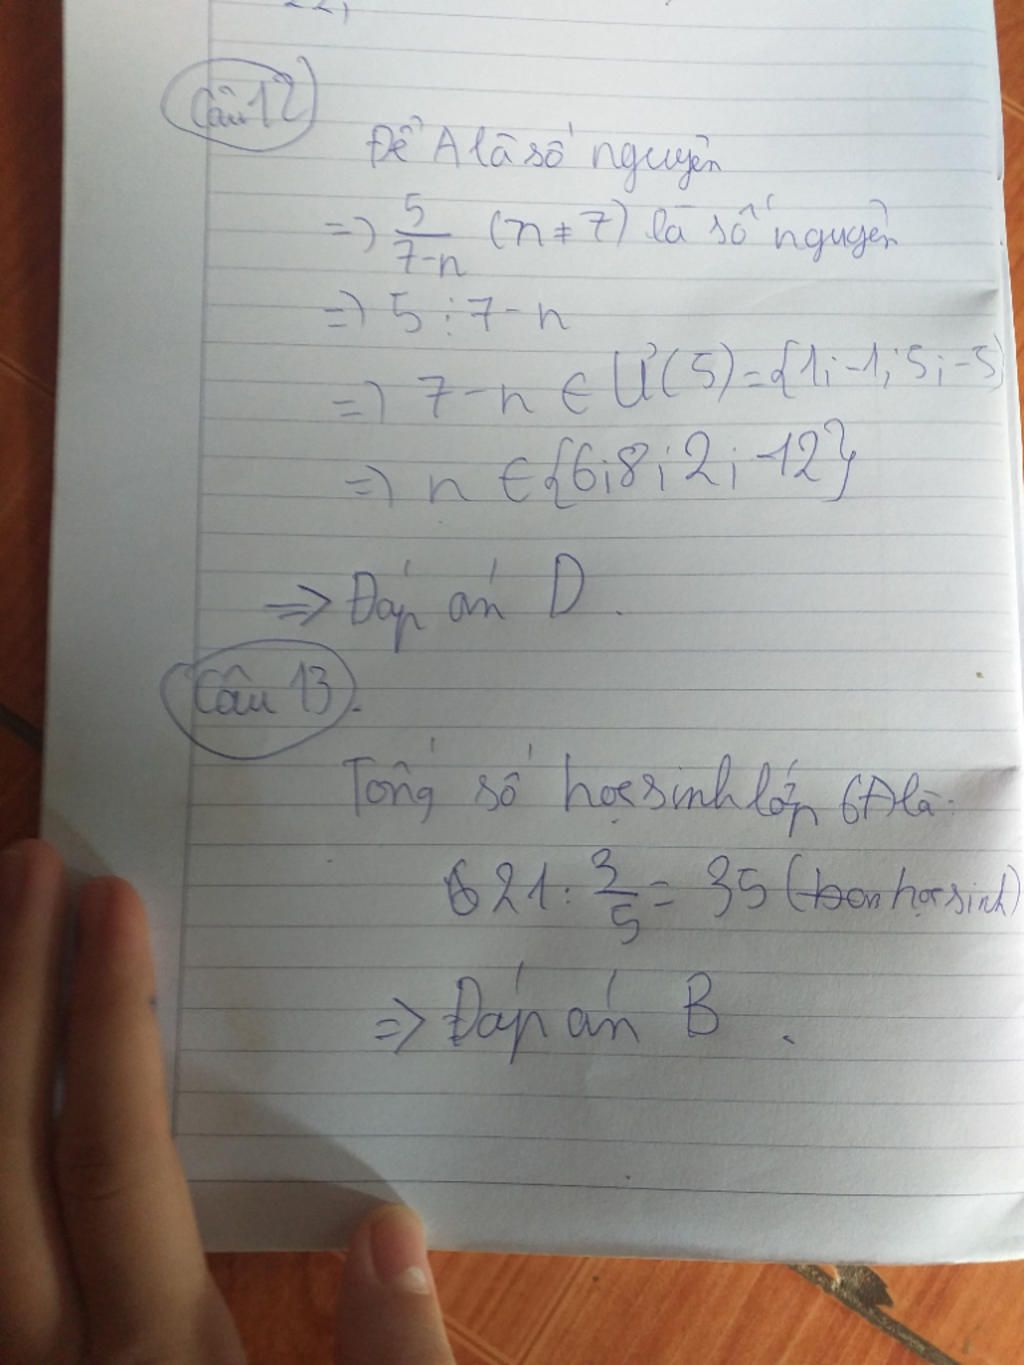 Câu 12
Để A là số nguyên
=> 5/7-n (n ≠ 7) là số nguyên
=> 5 ⋮ 7-n
=> 7-n ∈ Ư(5)={1;-1;5;-5}
=> n ∈ {6;8;2;-12}
=> Đáp án D.
Câu 13.
Tổng số học sinh lớp 6A là:
21 : 3/5 = 35 (học sinh)
=> Đáp án B.